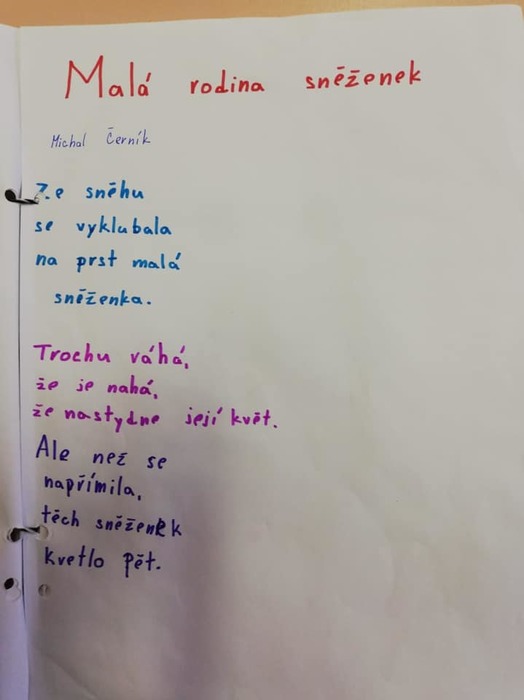 Malá rodina sněženek
Michal Černík
Ze sněhu
se vyklubala
na prst malá
sněženka.
Trochu váhá,
že je nahá,
že nastydne její květ.
Ale než se
napřímila,
těch sněženek
kvetlo pět.